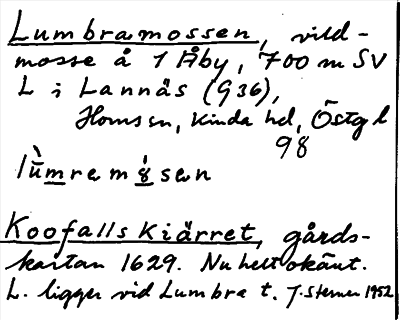 Lumbramossen, vild-
mosse å 1 Åby, 700 m SV
L i Lannäs (936),
Hornsn, Kinda hd, Östg l
98
lùmremåsen
Koofalls Kiärret, gårds-
kartan 1629. Nu helt okänt.
L. ligger vid Lumbra t. J. Sterner 1952